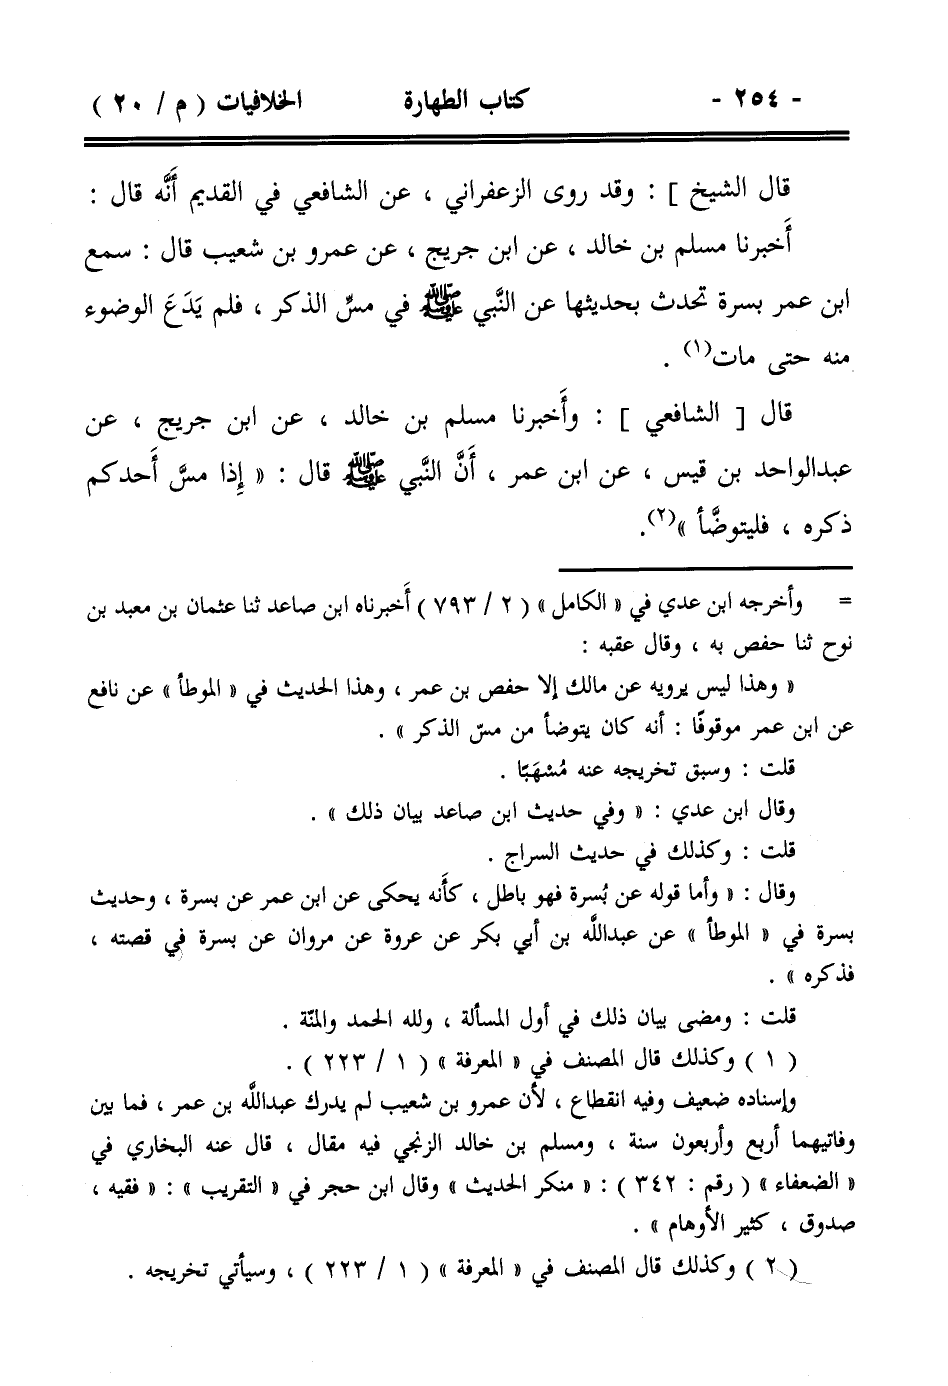 - ٢٥٤ - كتاب الطهارة الخلافيات ( م / ٢٠ )
قال الشيخ ] : وقد روى الزعفراني ، عن الشافعي في القديم أَنَّه قال :
أَخبرنا مسلم بن خالد ، عن ابن جريج ، عن عمرو بن شعيب قال : سمع
ابن عمر بسرة تحدث بحديثها عن النَّبي ﷺ في مسِّ الذكر ، فلم يَدَعَ الوضوء
منه حتى مات(١) .
قال [ الشافعي ] : وأَخبرنا مسلم بن خالد ، عن ابن جريج ، عن
عبدالواحد بن قيس ، عن ابن عمر ، أَنَّ النَّبي ﷺ قال : « إِذا مسَّ أَحدكم
ذكره ، فليتوضَّأ »(٢).
= وأخرجه ابن عدي في « الكامل » ( ٢ / ٧٩٣ ) أَخبرناه ابن صاعد ثنا عثمان بن معبد بن
نوح ثنا حفص به ، وقال عقبه :
« وهذا ليس يرويه عن مالك إلا حفص بن عمر ، وهذا الحديث في « الموطأ » عن نافع
عن ابن عمر موقوفًا : أنه كان يتوضأ من مسّ الذكر » .
قلت : وسبق تخريجه عنه مُسْهَبًا .
وقال ابن عدي : « وفي حديث ابن صاعد بيان ذلك » .
قلت : وكذلك في حديث السراج .
وقال : « وأما قوله عن بُسرة فهو باطل ، كأَنه يحكى عن ابن عمر عن بسرة ، وحديث
بسرة في « الموطأ » عن عبداللَّه بن أبي بكر عن عروة عن مروان عن بسرة في قصته ،
فذكره » .
قلت : ومضى بيان ذلك في أول المسألة ، ولله الحمد والمنّة .
( ١ ) وكذلك قال المصنف في « المعرفة » ( ١ / ٢٢٣ ) .
وإسناده ضعيف وفيه انقطاع ، لأن عمرو بن شعيب لم يدرك عبداللَّه بن عمر ، فما بين
وفاتيهما أربع وأربعون سنة ، ومسلم بن خالد الزنجي فيه مقال ، قال عنه البخاري في
« الضعفاء » ( رقم : ٣٤٢ ) : « منكر الحديث » وقال ابن حجر في « التقريب » : « فقيه ،
صدوق ، كثير الأوهام » .
( ٢ ) وكذلك قال المصنف في « المعرفة » ( ١ / ٢٢٣ ) ، وسيأتي تخريجه .